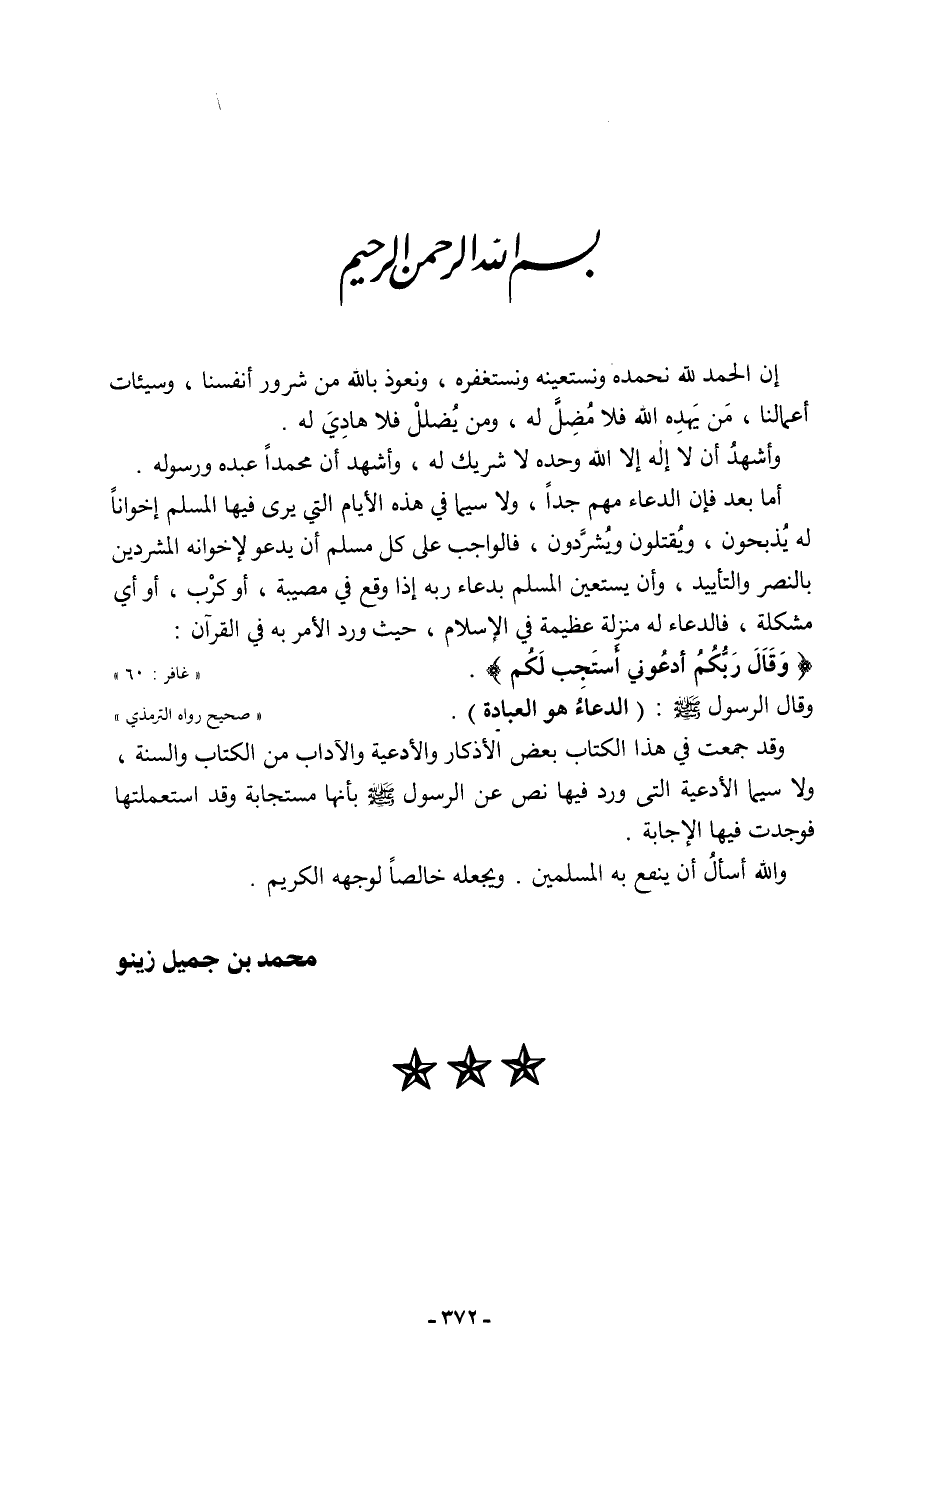 بسم الله الرحمن الرحيم
إن الحمد لله نحمده ونستعينه ونستغفره ، ونعوذ بالله من شرور أنفسنا ، وسيئات
أعمالنا ، مَن يَهدِه الله فلا مُضِلَّ له ، ومن يُضللْ فلا هادِيَ له .
وأشهدُ أن لا إلٰه إلا الله وحده لا شريك له ، وأشهد أن محمداً عبده ورسوله .
أما بعد فإن الدعاء مهم جداً ، ولا سيما في هذه الأيام التي يرى فيها المسلم إخواناً
له يُذبحون ، ويُقتلون ويُشرَّدون ، فالواجب على كل مسلم أن يدعو لإخوانه المشردين
بالنصر والتأييد ، وأن يستعين المسلم بدعاء ربه إذا وقع في مصيبة ، أو كرْب ، أو أي
مشكلة ، فالدعاء له منزلة عظيمة في الإسلام ، حيث ورد الأمر به في القرآن :
﴿ وَقَالَ رَبُّكُمُ أدعُوني أَستَجِب لَكُم ﴾ . « غافر : ٦٠ »
وقال الرسول ﷺ : ( الدعاءُ هو العبادة ) . « صحيح رواه الترمذي »
وقد جمعت في هذا الكتاب بعض الأذكار والأدعية والآداب من الكتاب والسنة ،
ولا سيما الأدعية التى ورد فيها نص عن الرسول ﷺ بأنها مستجابة وقد استعملتها
فوجدت فيها الإجابة .
والله أسألُ أن ينفع به المسلمين . ويجعله خالصاً لوجهه الكريم .
محمد بن جميل زينو
- ٣٧٢ -